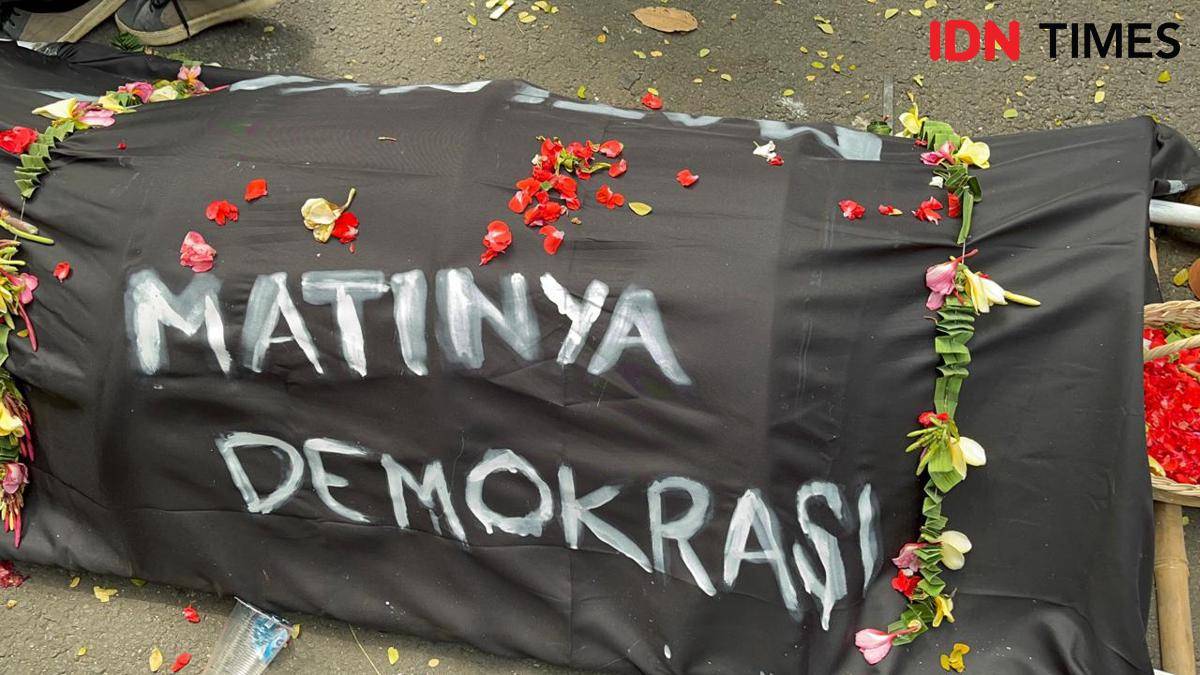 IDN TIMES
MATINYA
DEMOKRASI